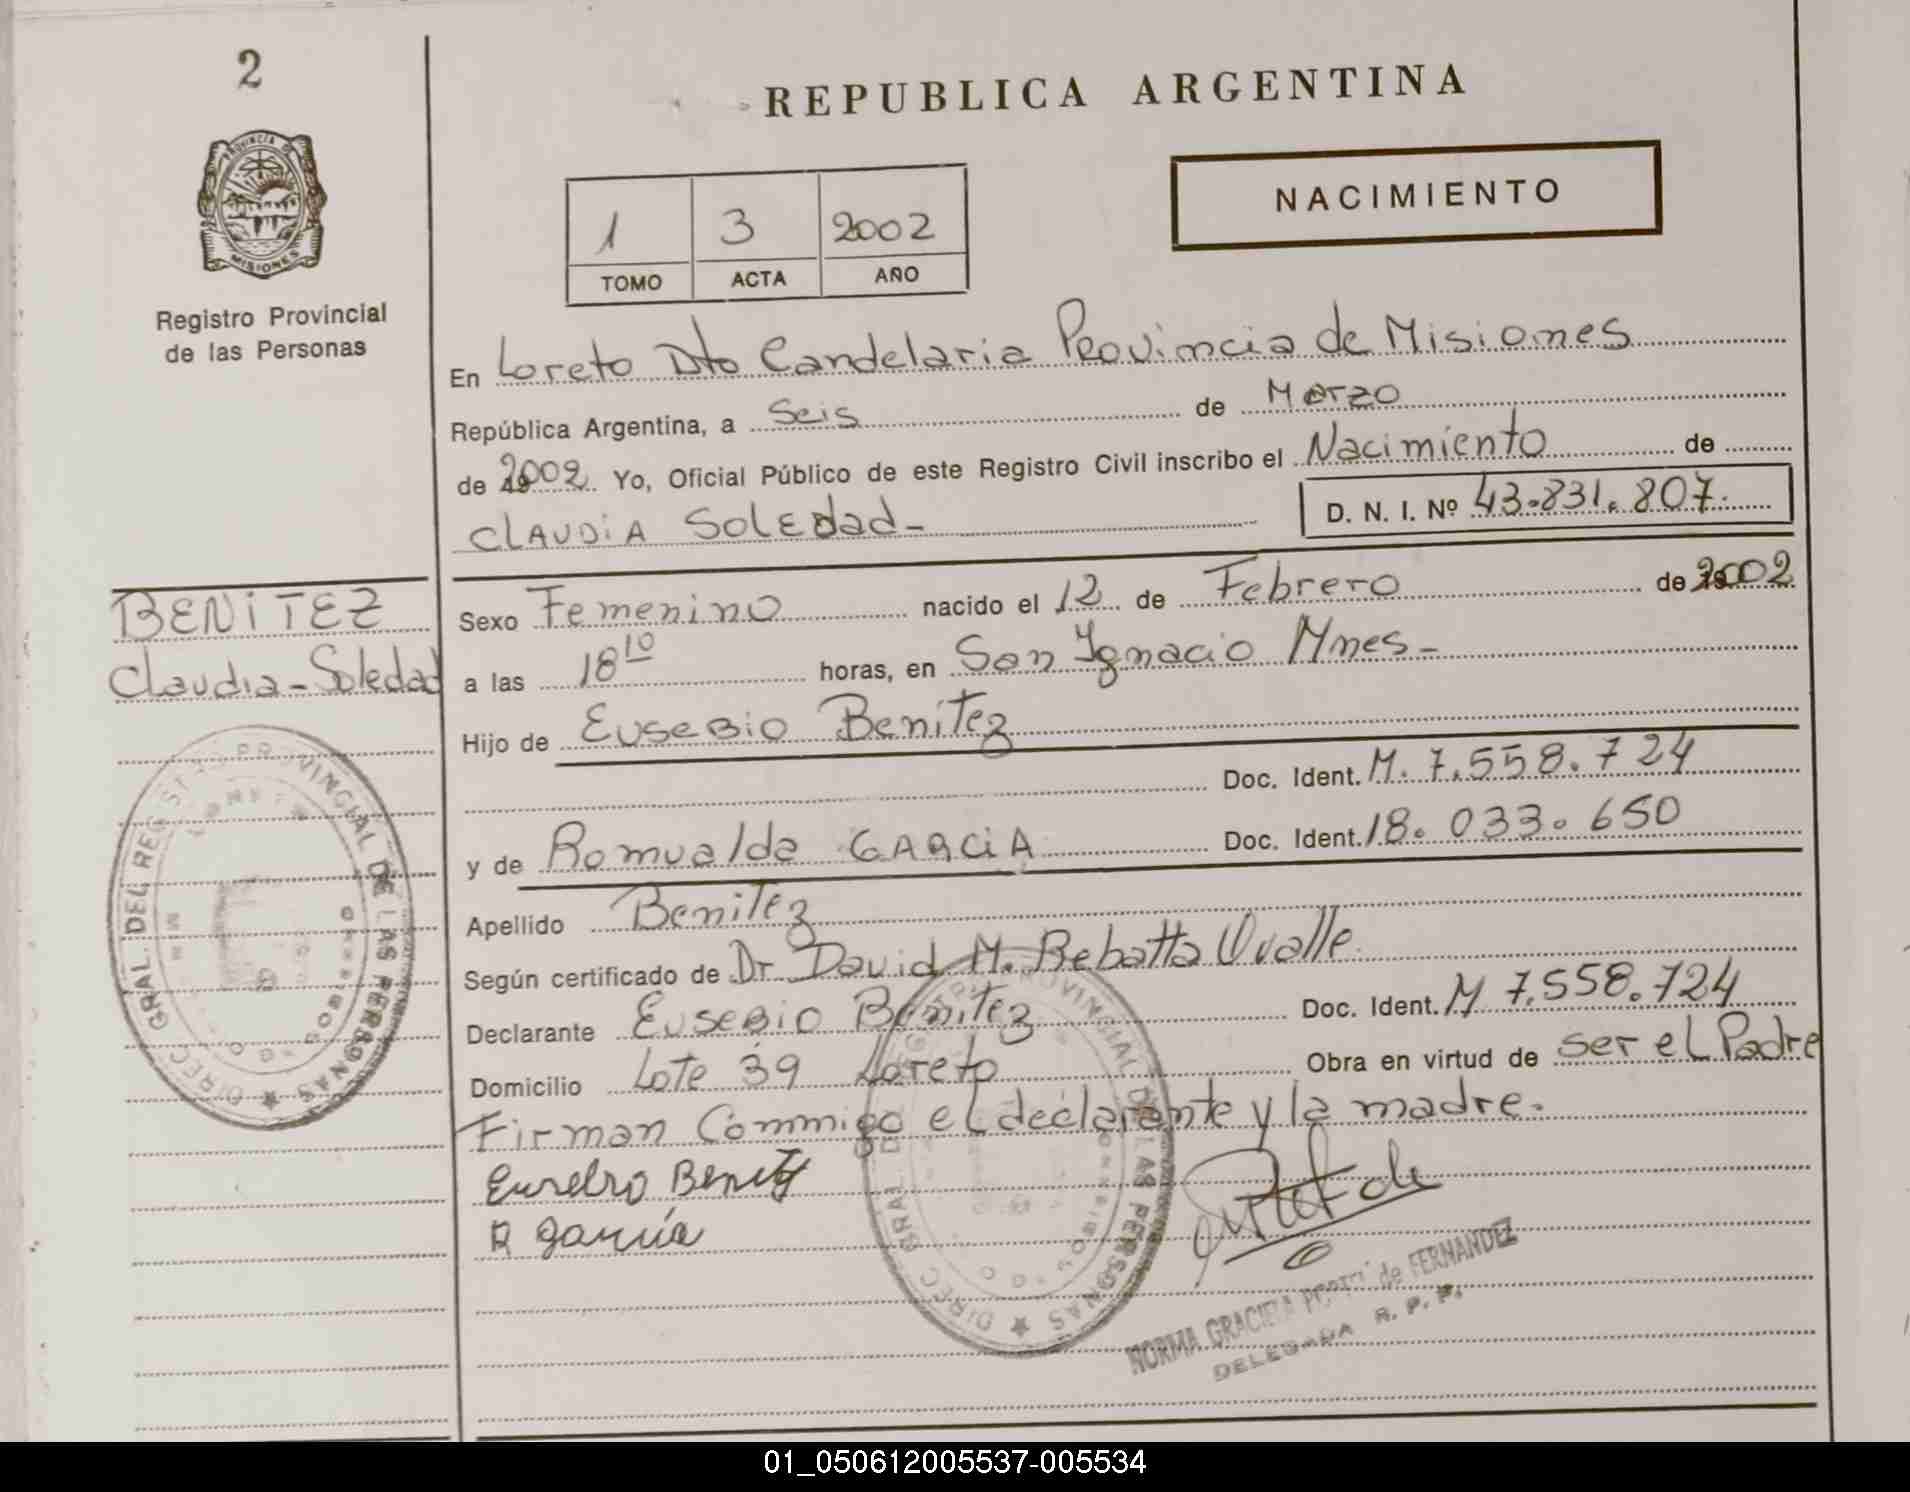 2
PROVINCIA DE
MISIONES
Registro Provincial
de las Personas
REPUBLICA ARGENTINA
NACIMIENTO
1 3 2002
TOMO ACTA AÑO
En Loreto Dto Candelaria Provincia de Misiones
República Argentina, a Seis de Marzo
de 2002 Yo, Oficial Público de este Registro Civil inscribo el Nacimiento de
CLAUDIA SOLEDAD- D. N. I. Nº 43.831.807.
BENITEZ
Claudia-Soledad
Sexo Femenino nacido el 12 de Febrero de 2002
a las 18 10 horas, en San Ignacio Mnes-
Hijo de Eusebio Benítez
Doc. Ident. M. 7.558.724
y de Romualda GARCIA Doc. Ident. 18.033.650
Apellido Benitez
Según certificado de Dr David M. Rebatta Uvalle
Declarante Eusebio Benitez Doc. Ident. M 7.558.724
Domicilio Lote 39 Loreto Obra en virtud de ser el Padre
Firman Commigo el declarante y la madre.
Eusebio Benitez
R García
DIREC. GRAL. DEL REGIST. PROVINCIAL DE LAS PERSONAS
LORETO
DIREC. GRAL. DEL REGIST. PROVINCIAL DE LAS PERSONAS
NORMA GRACIELA de FERNANDEZ
DELEGADA R. P. P.
01_050612005537-005534